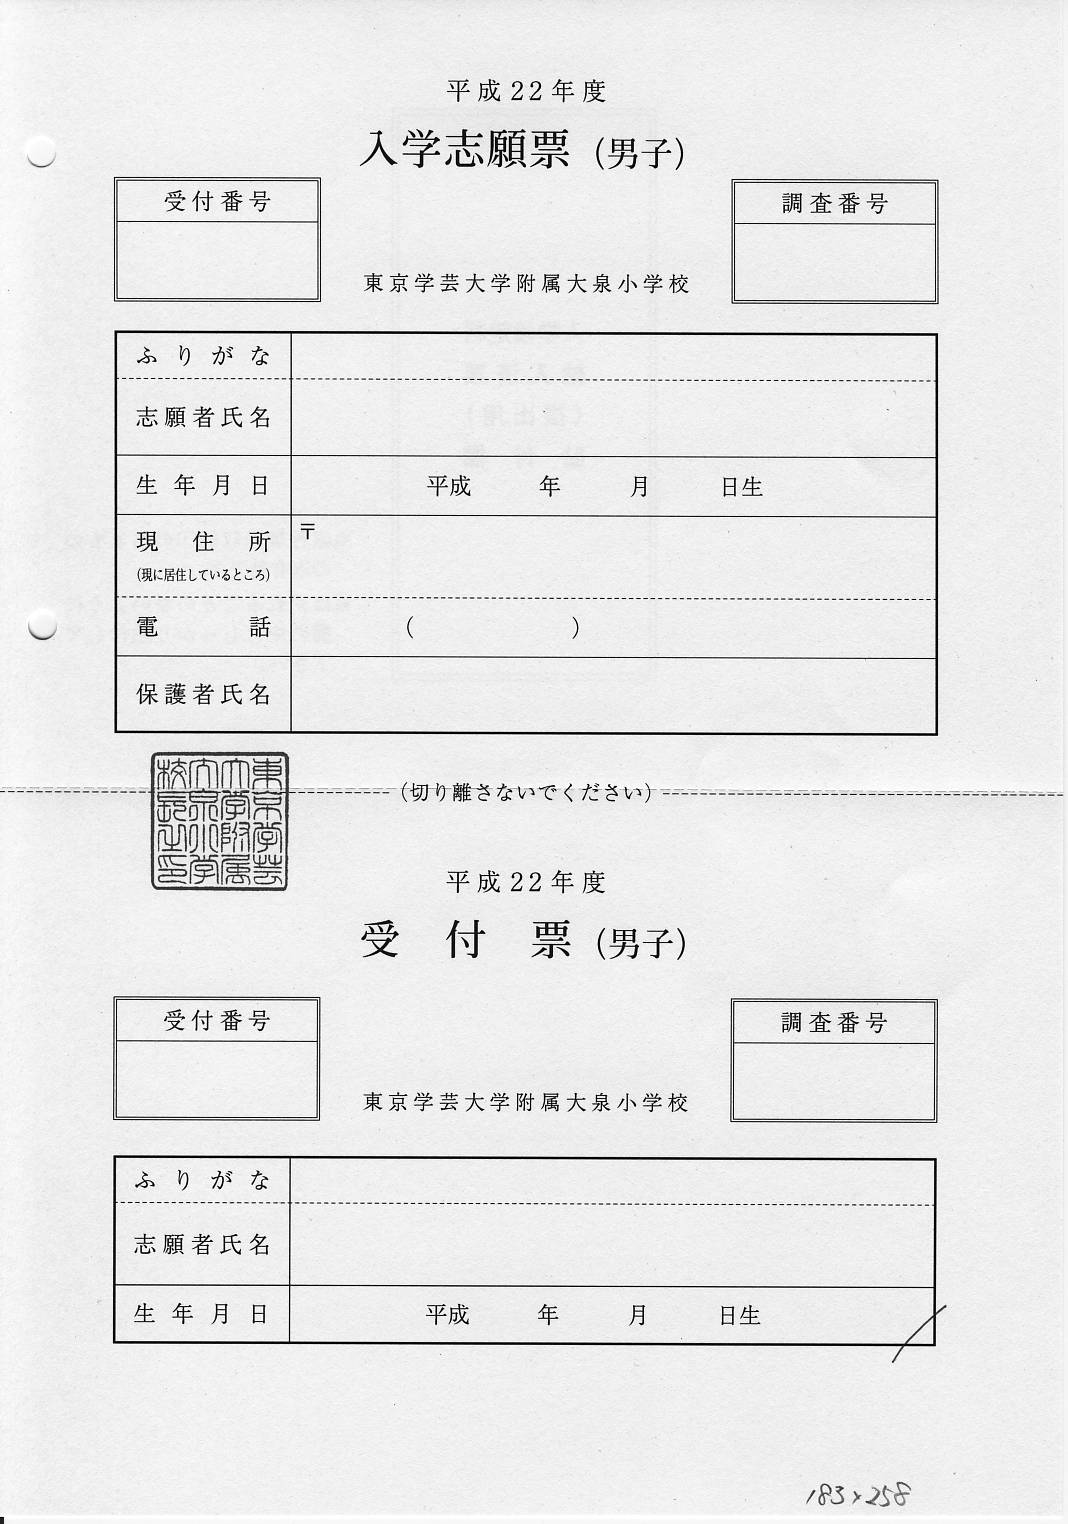 平成22年度
入学志願票（男子）
受付番号
調査番号
東京学芸大学附属大泉小学校
ふりがな
志願者氏名
生年月日 平成 年 月 日生
現住所 〒
（現に居住しているところ）
電話 （ ）
保護者氏名
（切り離さないでください）
東京学芸
大学附属
大泉小学
校長之印
平成22年度
受付票（男子）
受付番号
調査番号
東京学芸大学附属大泉小学校
ふりがな
志願者氏名
生年月日 平成 年 月 日生
183×258